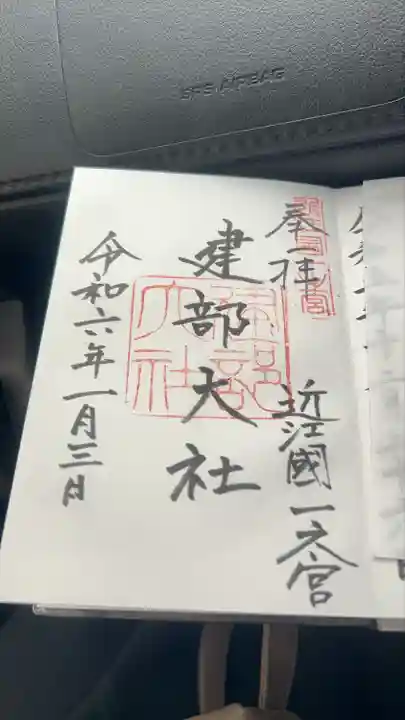 SRS AIRBAG
奉拝
近江國一之宮
建部大社
建部大社
令和六年一月三日